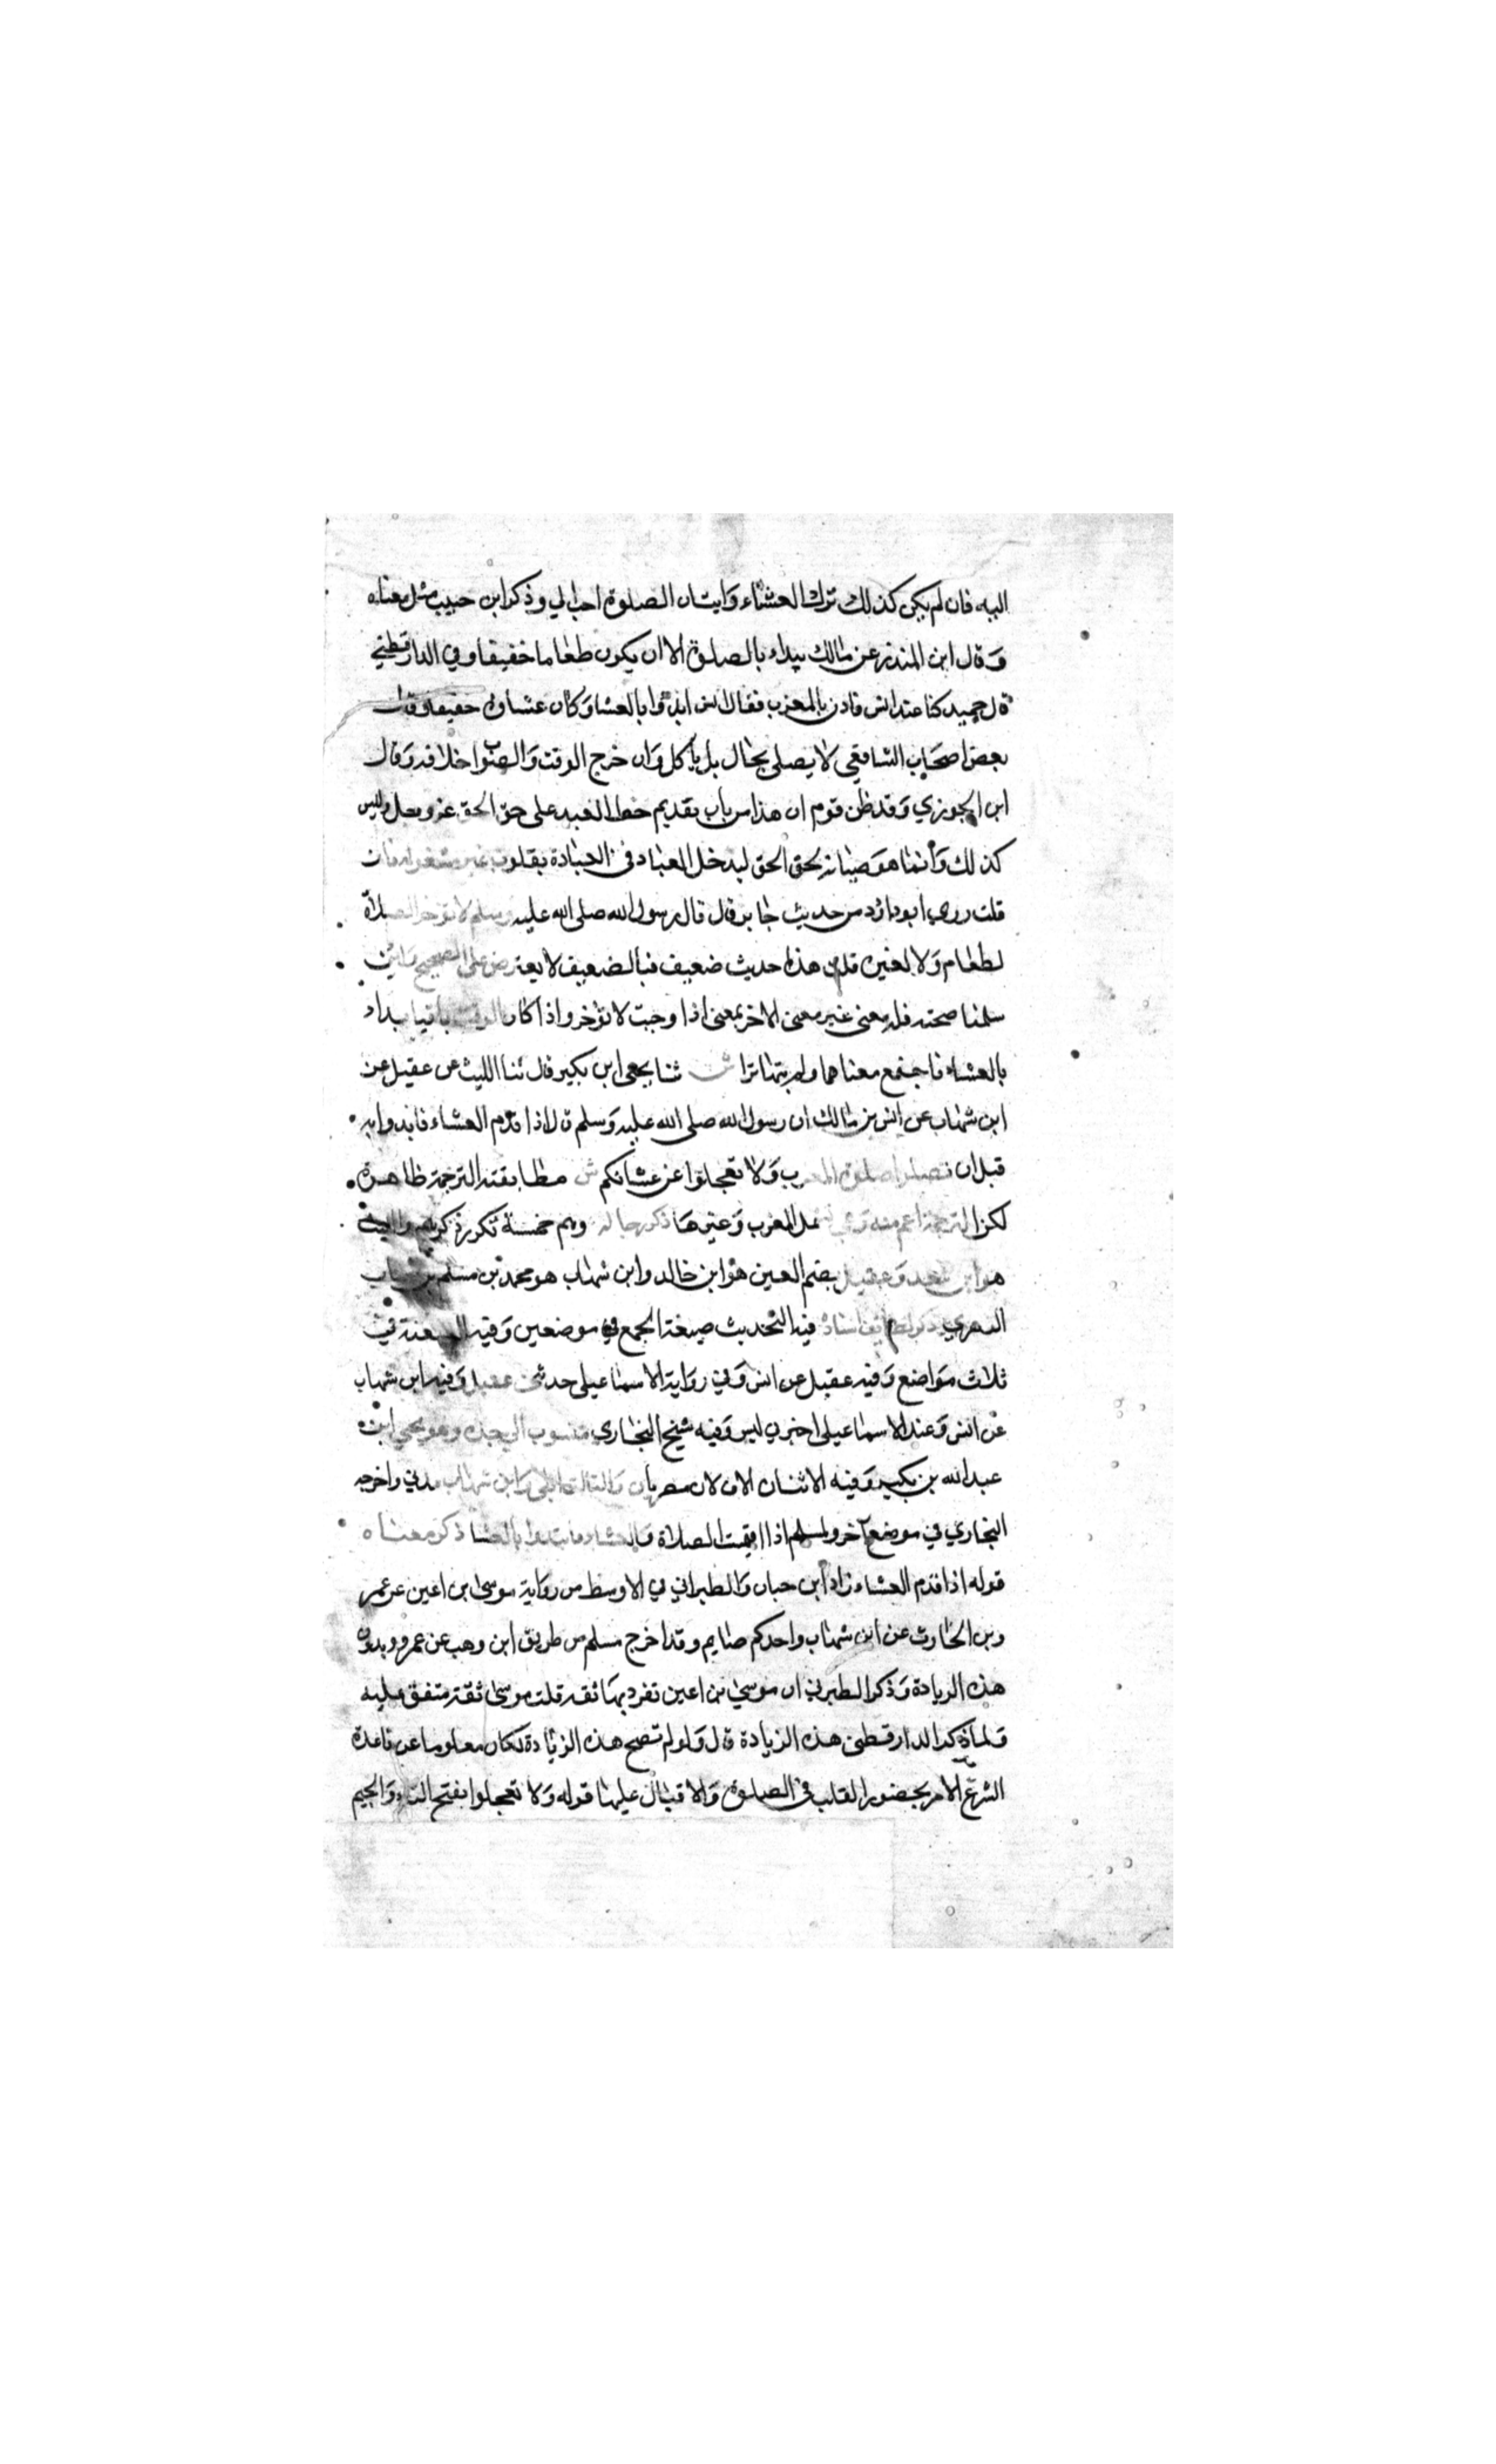 اليه فان لم يكن كذلك ترك العشاء وايتان الصلوة احب الي وذكر ابن حبيب مثل معناه
وقال ابن المنذر عن مالك يبداء بالصلوة الا ان يكون طعاما خفيفا وفي الدارقطني
قال حميد كنا عند انس فاذن بالمغرب فقال انس ابدؤا بالعشا وكان عشاوه خفيفا وقال
بعض اصحاب الشافعي لا يصلي بحال بل ياكل وان خرج الوقت والصواب خلافه وقال
ابن الجوزي وقد ظن قوم ان هذا من باب تقديم حظ العبد على حق الحق عز وجل وليس
كذلك وانما هو صيانة لحق الحق ليدخل العباد في العبادة بقلوب غير مشغوله فان
قلت روي ابو داؤد من حديث جابر قال قال رسول الله صلى الله عليه وسلم لا تؤخر الصلاة
لطعام ولا لغيره قلت هذا حديث ضعيف فبالضعيف لا يعترض على الصحيح ولئن
سلمنا صحته فله معنى غير معنى الاخر بمعنى اذا وجبت لا تؤخر واذا كان الوقت باقيا يبداء
بالعشاء فاجتمع معناهما ولم يتهاترا ثنا يحيى ابن بكير قال ثنا الليث عن عقيل عن
ابن شهاب عن انس بن مالك ان رسول الله صلى الله عليه وسلم قال اذا قدم العشاء فابدوا به
قبل ان تصلوا صلوة المغرب ولا تعجلوا عن عشائكم ش مطابقته الترجمة ظاهرة
لكن الترجمة اعم منه المغرب وغيرها ذكر رجاله وهم خمسة تكرر ذكرهم والليث
هو ابن سعد وعقيل بضم العين هو ابن خالد وابن شهاب هو محمد بن مسلم بن شهاب
الزهري ذكر لطائف اسناده فيه التحديث صيغة الجمع في موضعين وفيه العنعنة في
ثلاث مواضع وفيه عقيل عن انس وفي رواية الاسماعيلي حدثني عقيل وفيه ابن شهاب
عن انس وعند الاسماعيلي اخبرني انس وفيه شيخ البخاري منسوب الى جده وهو يحيى ابن
عبد الله بن بكير وفيه الاثنان الاولان مصريان والثالث ايلي وابن شهاب مدني واخرجه
البخاري في موضع آخر ولمسلم اذا اقيمت الصلاة والعشاء فابدوا بالعشا ذكر معناه
قوله اذا قدم العشاء زاد ابن حبان والطبراني في الاوسط من رواية موسى ابن اعين عن عمر
وبن الحارث عن ابن شهاب واحدكم صايم وقد اخرج مسلم من طريق ابن وهب عن عمرو وبدون
هذه الزيادة وذكر الطبرني ان موسى بن اعين تفرد بها ثقه قلت موسى ثقة متفق عليه
ولما ذكر الدارقطني هذه الزيادة قال ولو لم تصح هذه الزيادة لكان معلوما عن قاعدة
الشرع الامر بحضور القلب في الصلوة والاقبال عليها قوله ولا تعجلوا بفتح التاء والجيم